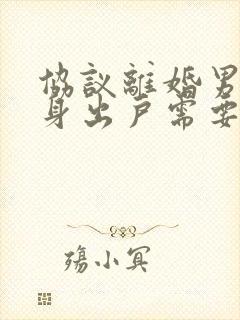 協議離婚男
身出戶需要
殤小冥